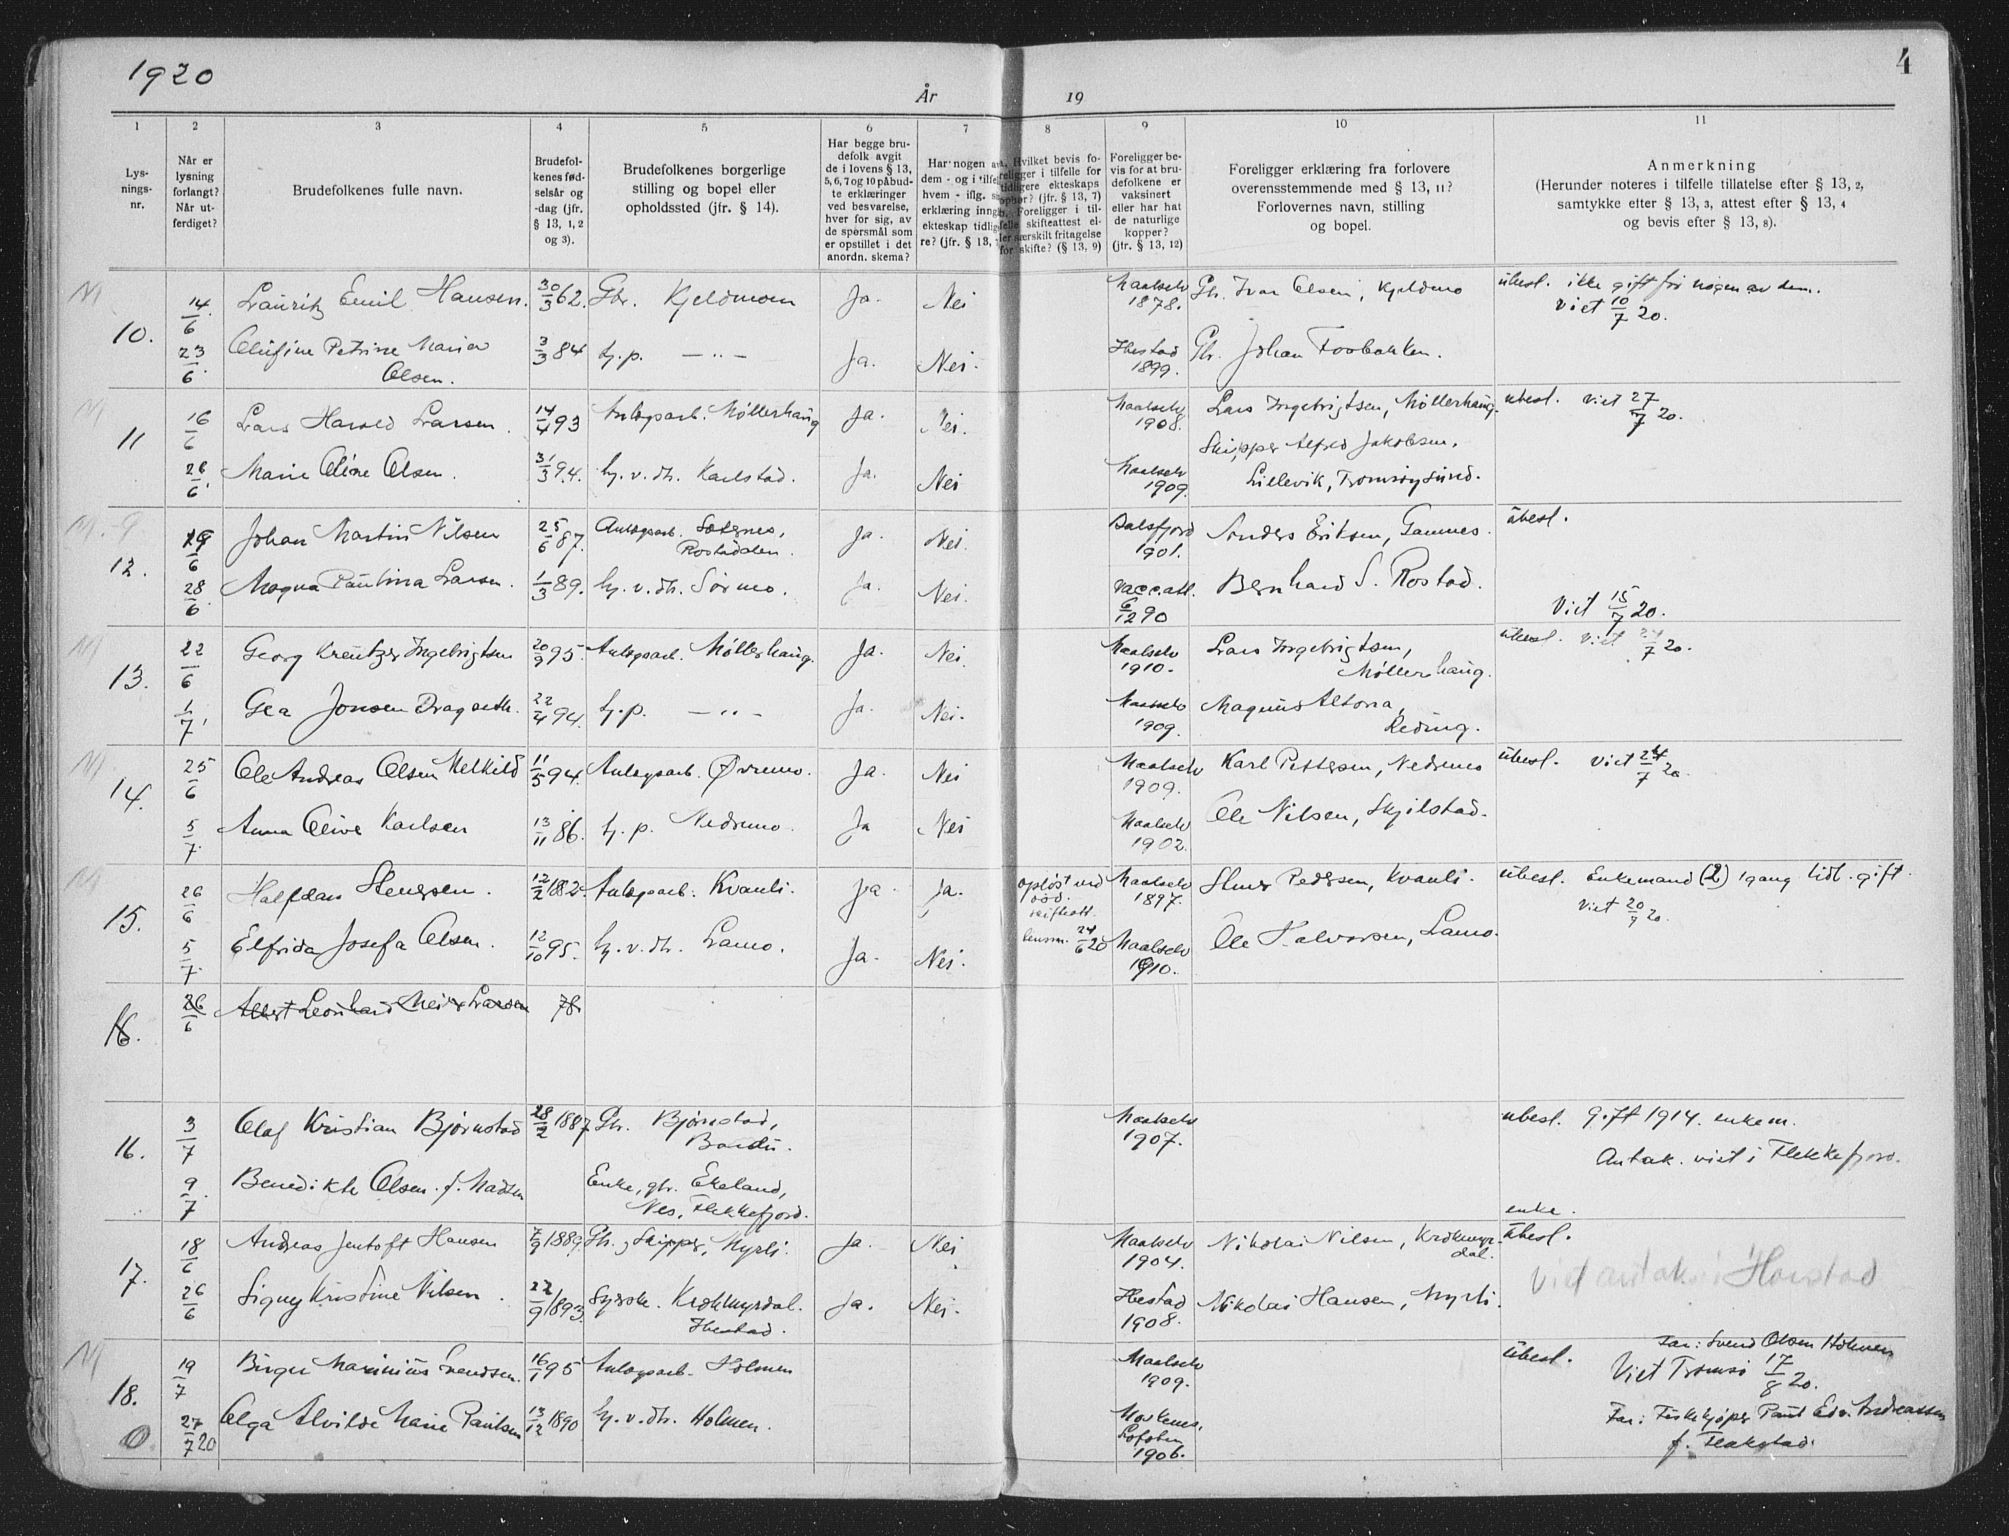 1920
År
19
4
1
2
3
4
5
6
7
8
9
10
11
Lys-
nings-
nr.
Når er
lysning
forlangt?
Når ut-
ferdiget?
Brudefolkenes fulle navn.
Brudefol-
kenes fød-
selsår og
-dag (jfr.
§ 13, 1, 2
og 3).
Brudefolkenes borgerlige
stilling og bopel eller
opholdssted (jfr. § 14).
Har begge bru-
defolk avgit
de i lovens § 13,
5, 6, 7 og 10 påbud-
te erklæringer
ved besvarelse,
hver for sig, av
de spørsmål som
er opstillet i det
anordn. skema?
Har nogen av
dem - og i tilfel
hvem - iflg. s
erklæring inng
ekteskap tidlig
re? (jfr. § 13,
Hvilket bevis fo-
religger i tilfelle for
tidligere ekteskaps
ophør? (jfr. § 13, 7)
Foreligger i til-
felle skifteattest el-
ler særskilt fritagelse
for skifte? (§ 13, 9)
Foreligger be-
vis for at bru-
defolkene er
vaksinert
eller har hat
de naturlige
kopper?
(jfr. § 13, 12)
Foreligger erklæring fra forlovere
overensstemmende med § 13, 11?
Forlovernes navn, stilling
og bopel.
Anmerkning
(Herunder noteres i tilfelle tillatelse efter § 13, 2,
samtykke efter § 13, 3, attest efter § 13, 4
og bevis efter § 13, 8).
10. 14/6 Lauritz Emil Hansen. 30/3 62. Gbr. Kjeldmoen Ja. Nei Maalselv 1878. Gb. Ivar Olsen, Kjeldmo übest. ikke gift før nogen av dem.
Viet 10/7 20.
23/6. Olufine Petrine Maria Olsen. 3/3 84 tj.p. — „ — Ja. Nei. Ibestad 1899. Gb. Johan Foobakken.
11 16/6 Lars Harold Larsen. 14/4 93 Anlægsarb. Møllerhaug Ja. Nei. Maalselv 1908. Lars Ingebrigtsen, Møllerhaug. übest. Viet 27/7 20.
26/6. Marie Oline Olsen. 31/3 94. hj. v. dt. Karlstad. Ja. Nei Maalselv 1909. Skipper Alfred Jakobsen,
Lillevik, Tromsøysund.
12. 19/6 Johan Martin Nilsen 25/6 87. Anlægsarb. Sæternes,
Rostadalen. Ja. Nei. Balsfjord 1901. Anders Eriksen, Gamnes. übest.
28/6. Magna Paulina Larsen. 1/3 89. hj. v. dt. Sørmo. Ja. Nei. vacc. att. 6/12 90 Bernhard S. Rostad. Viet 15/7 20.
13. 22/6 Georg Kreutzer Ingebrigtsen 20/9 95. Anlægsarb. Møllerhaug. Ja. Nei. Maalselv 1910. Lars Ingebrigtsen,
Møllerhaug. übest. Viet 24/7 20.
1/7. Gea Jonsen Dragseth. 22/4 94. tj.p. — „ — Ja. Nei. Maalselv 1909. Magnus Altona,
Reding.
14. 25/6 Ole Andreas Olsen Melkild 11/5 94. Anlægsarb. Øvremo. Ja. Nei Maalselv 1909. Karl Pettersen, Nedremo übest. Viet 24/7 20.
5/7. Anna Olive Karlsen 13/11 86. tj. p. Nedremo. Ja Nei Maalselv 1902. Ole Nilsen, Skjilstad.
15. 26/6 Halfdan Stensen. 12/2 182. Anlægsarb. Kvanli. Ja Ja. opløst ved død.
skifteatt.
lensm. 24/6 20 Maalselv 1897. Pedersen, Kvanli. übest. Enkemand (2) 1 gang tidl. gift.
Viet 20/7 20.
5/7. Elfrida Josefa Olsen. 12/10 95. hj. v. dt. Lamo. Ja. Nei. Maalselv 1910. Ole Halvorsen, Lamo.
16. 26/6 Albert Leonhard Meier Larsen 78.
16. 3/7 Olaf Kristian Bjørnstad 28/2 1887 Gb. Bjørnstad,
Bardu. Maalselv 1907. übest. Gift 1914. enkem.
Antak. viet i Flekkefjord.
9/7. Benedikte Olsen. f. Madsen Enke, gbr. Ekeland,
Nes, Flekkefjord. enke.
17. 18/6 Andreas Jentoft Hansen 7/9 1889. Gb., Skipper, Myrli. Ja. Nei Maalselv 1904. Nikolai Nilsen, Krokmyr-
dal. übest.
viet antak i Harstad
26/6 Signy Kristine Nilsen. 22/9 1893. Sydsk. Krokmyrdal.
Ibestad. Ja. Nei. Ibestad 1908. Nikolai Hansen, Myrli.
18. 19/7 Birger Marinius Svendsen. 16/1 95 Anlægsarb. Holmen Maalselv 1909. übest. Far: Svend Olsen Holmen
Viet Tromsø 17/8 20.
27/7 20 Olga Alvilde Marie Paulsen 13/12 1890 hj. v. dt. Holmen. Moskenes,
Lofoten
1906. Far: Fiskekjøper Paul Edv. Andreassen
f. Flakstad.